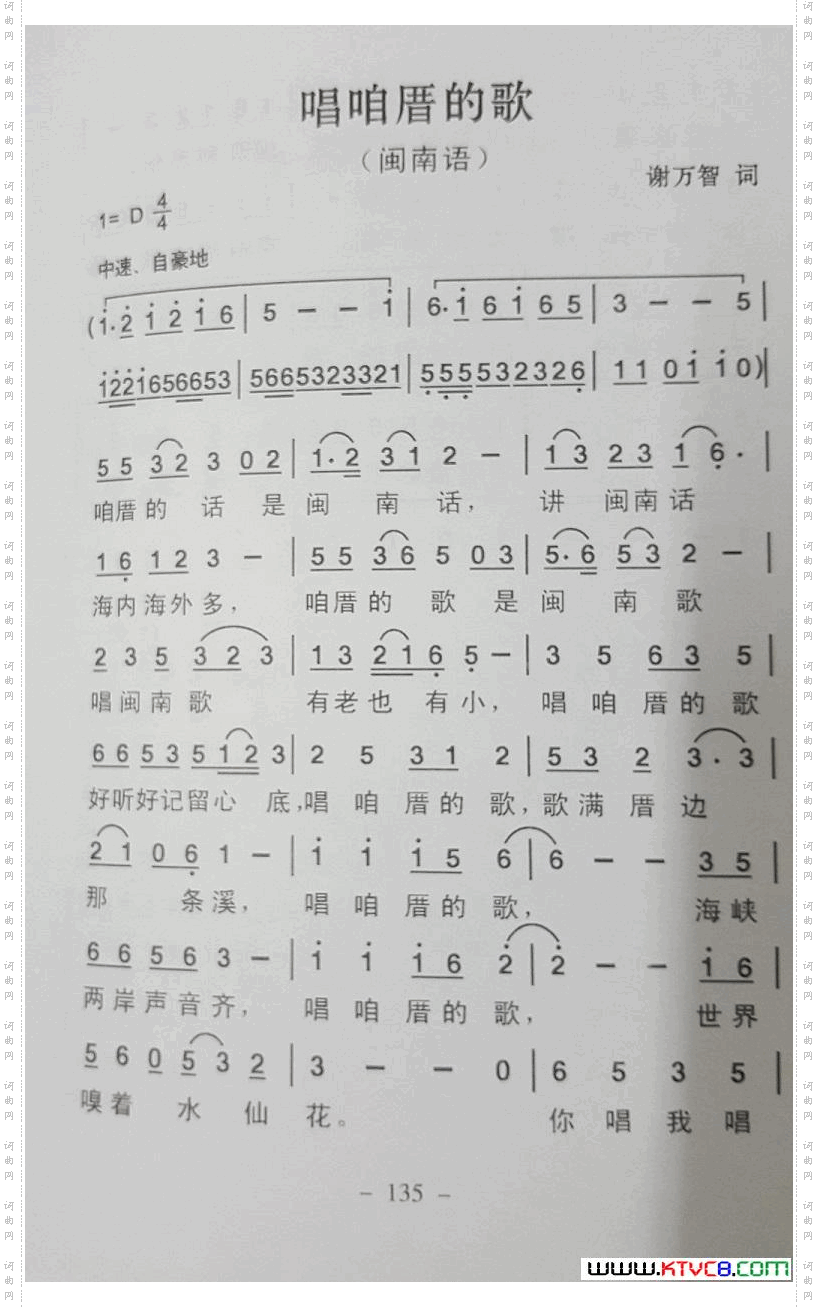 唱咱厝的歌
（闽南语）
谢万智 词
1= D 4/4
中速、自豪地
(1·2 1 2 1 6 | 5 — — 1 | 6·1 6 1 6 5 | 3 — — 5 |
122165 6653 | 566532 3321 | 555532 326 | 1 1 0 1 1 0)|
5 5 3 2 3 0 2 | 1·2 3 1 2 — | 1 3 2 3 1 6· |
咱厝的 话 是 闽 南 话， 讲 闽南话
1 6 1 2 3 — | 5 5 3 6 5 0 3 | 5·6 5 3 2 — |
海内海外多， 咱厝的 歌 是 闽 南 歌
2 3 5 3 2 3 | 1 3 2 1 6 5 — | 3 5 6 3 5 |
唱闽南歌 有老也 有小， 唱 咱 厝的歌
6 6 5 3 5 1 2 3 | 2 5 3 1 2 | 5 3 2 3·3 |
好听好记留心 底，唱 咱 厝的 歌，歌满 厝 边
2 1 0 6 1 — | 1 1 1 5 6 | 6 — — 3 5 |
那 条溪， 唱 咱 厝的 歌， 海峡
6 6 5 6 3 — | 1 1 1 6 2 | 2 — — 1 6 |
两岸声音齐， 唱 咱 厝的 歌， 世界
5 6 0 5 3 2 | 3 — — 0 | 6 5 3 5 |
嗅着 水 仙 花。 你 唱 我 唱
– 135 –
www.KTVC8.com
词曲网